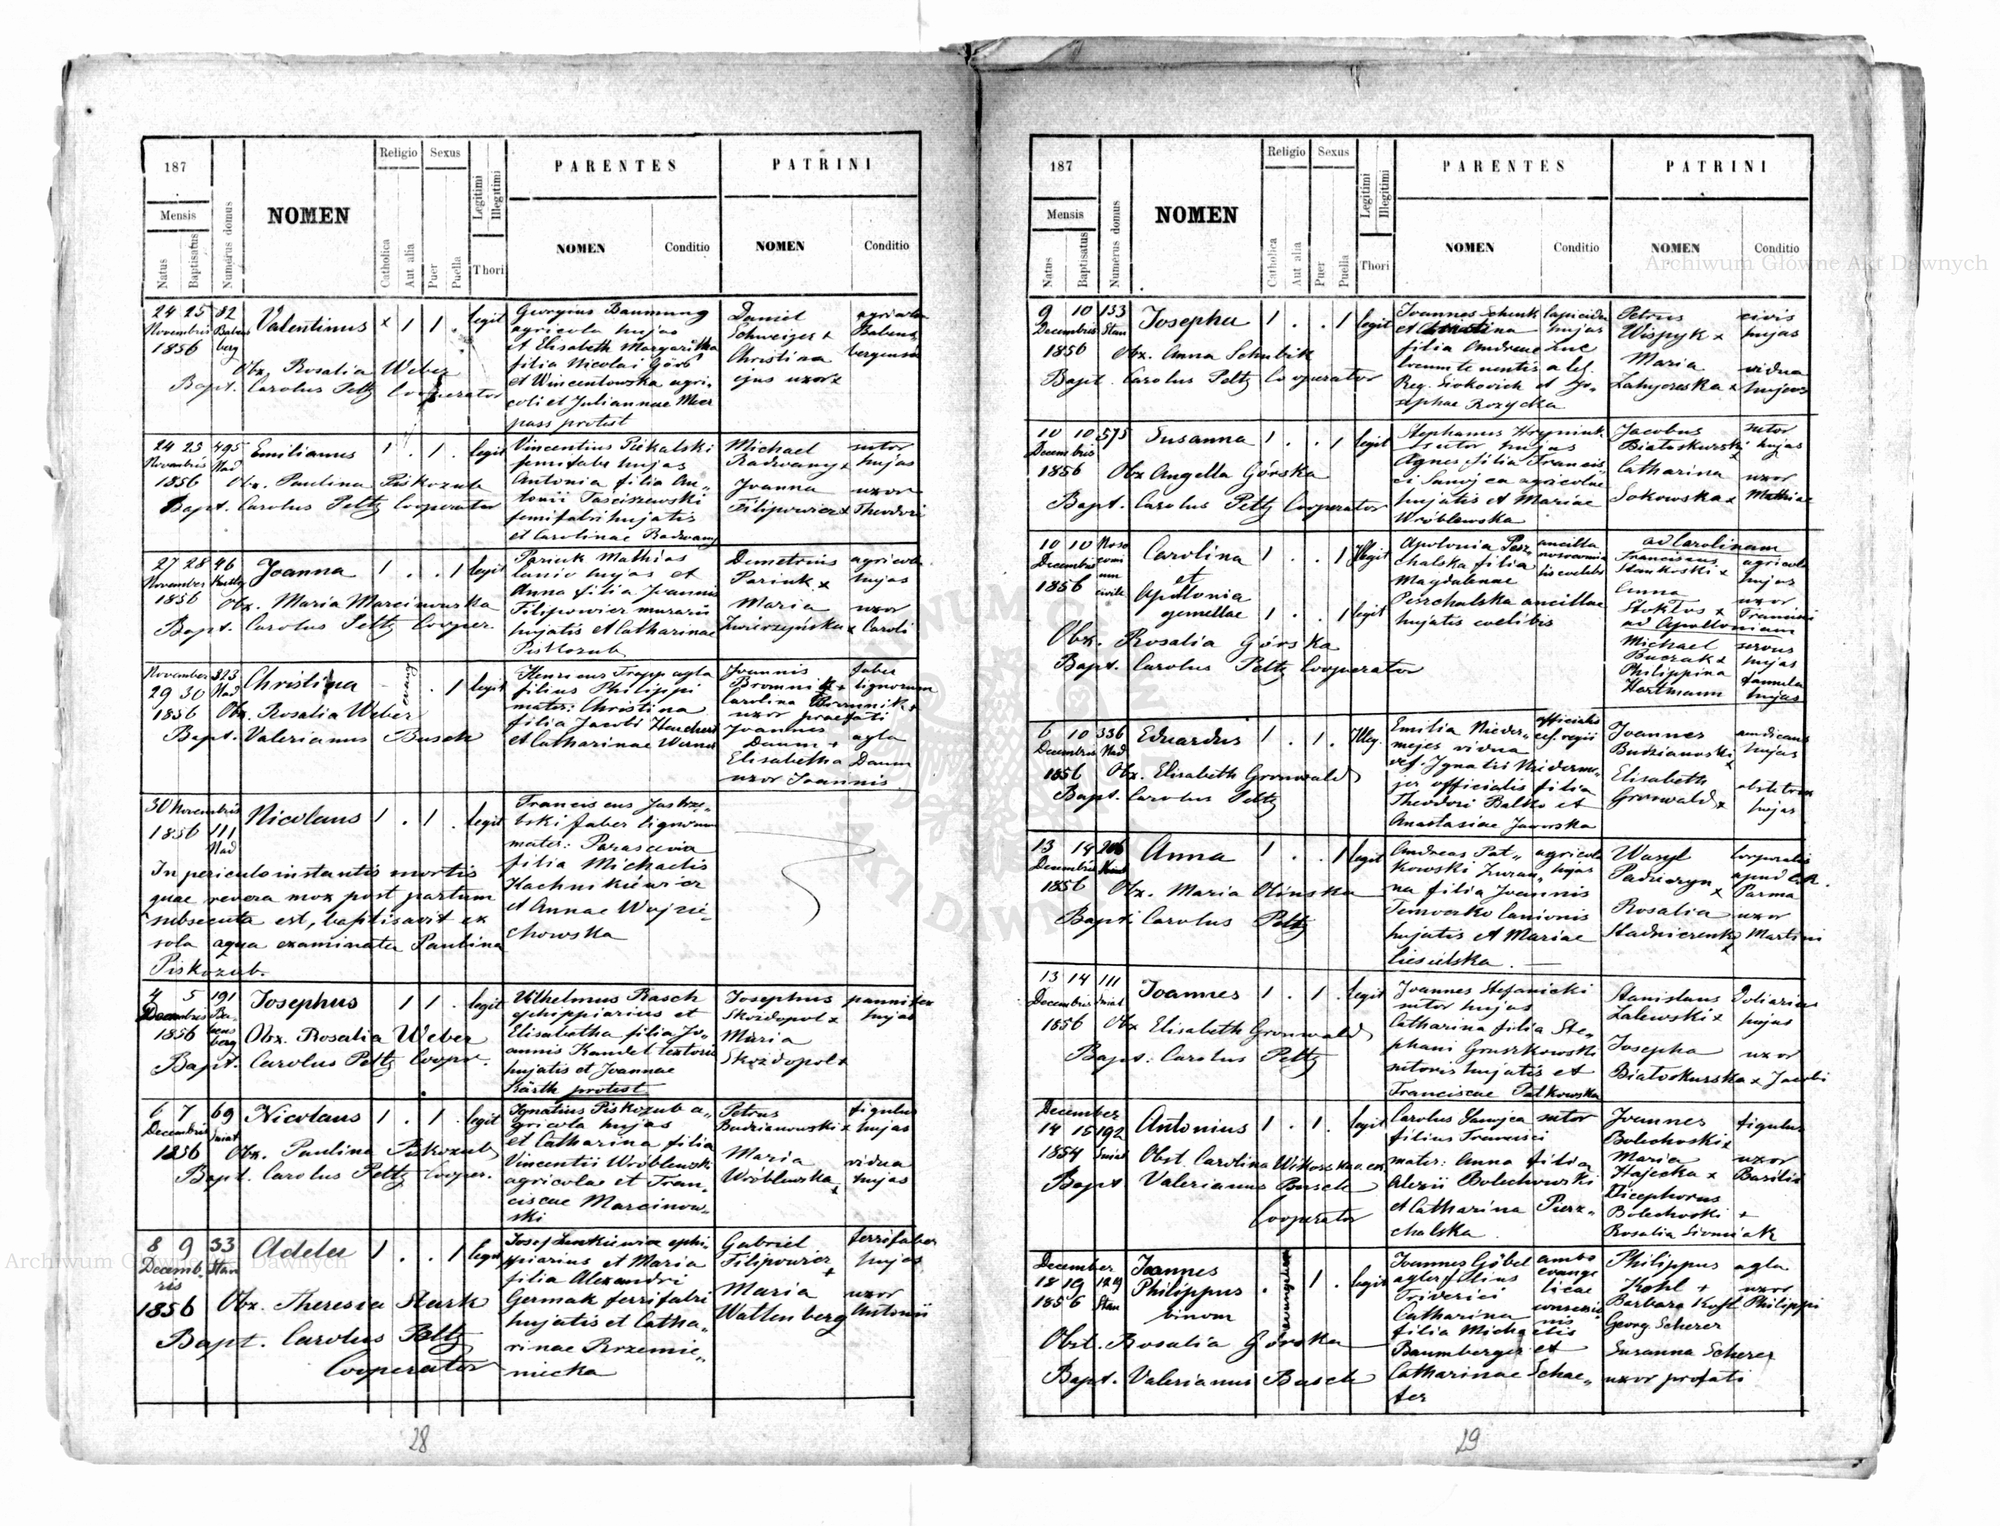 187
Mensis
Natus
Baptisatus
Numerus domus
NOMEN
Religio
Catholica
Aut alia
Sexus
Puer
Puella
Legitimi
Illegitimi
Thori
PARENTES
NOMEN
Conditio
PATRINI
NOMEN
Conditio
24 25 82
Novembris
1856
berg
Valentinus
legit
Obx. Rosalia Weber
Bapt. Carolus Peltz Cooperator
Georgius Baumung
agricola hujas
et Elisabeth Margaritha
filia Nicolai
et Wincentowska agri-
coli et Juliannae
pass protest
Daniel
Schweiger +
Christina
ejus uxor x
agricola
24 25 495
Novembris
1856
Emilianus 1 . 1 . legit
Obx. Paulina Piskozub
Bapt. Carolus Peltz Cooperator
Vincentius Piekalski
hujas
Antonia filia An-
tonii Tasciszewski
hujatis
et Carolinae Radwany
Michael
Radwany x
Joanna
Filipowicz x
sutor
hujas
uxor
Theodori
27 28 46
November
1856
Joanna 1 . . 1 legit
Obx. Maria Marcinowska
Bapt. Carolus Peltz Cooper.
Pariuk Mathias
lanio hujas et
Anna filia Joannis
Filipowicz murarii
hujatis et Catharinae
Piskozub
Demetrius
Pariuk x
Maria
Zwierzyńska x
agricola
hujas
uxor
Caroli
November 323
29 30 Nad
1856
Christina
evang
. 1 legit
Obx. Rosalia Weber
Bapt. Valerianus Busch
Henricus Trapp agla
filius Philippi
mater: Christina
filia Jacobi
et Catharinae Werner
Joannis
Bromnik +
Carolina Bromnik +
uxor praefati
Joannes
Daum +
Elisabetha Daum
uxor Joannis
faber
lignorum
agla
30 Novembris
1856 111
Nad
Nicolaus 1 . 1 . legit
In periculo instantis mortis
quae revera mox post partum
subsecuta est, baptisavit ex
sola aqua examinata Paulina
Piskozub.
Franciscus Jastrzę-
bski faber lignorum
mater: Parascevia
filia Michaelis
Kachnikiewicz
et Annae Wojcie-
chowska
4 5 191
Decembris
1856
Josephus 1 1 . legit
Obx. Rosalia Weber
Bapt. Carolus Peltz Cooper.
Wilhelmus Rasch
ephippiarius et
Elisabetha filia Jo-
annis Kandel textoris
hujatis et Joannae
Kärth protest
Josephus
Skozdopol x
Maria
Skozdopol +
pannifex
hujas
6 7 69
Decembris
1856
Nicolaus 1 . 1 . legit
Obx. Paulina Piskozub
Bapt. Carolus Peltz Cooper.
Ignatius Piskozub a-
gricola hujas
et Catharina filia
Vincentii Wróblewski
agricolae et Fran-
ciscae Marcinow-
ski
Petrus
Budzianowski x
Maria
Wróblewska +
figulus
hujas
vidua
hujas
8 9 33
Decemb-
ris
1856
Adela 1 . . 1 legit
Obx. Theresia Stark
Bapt. Carolus Peltz
Cooperator
Josef Linkiewicz ephi-
ppiarius et Maria
filia Alexandri
Germak ferrifabri
hujatis et Catha-
rinae Krzemie-
niecka
Gabriel
Filipowicz +
Maria
Wattenberg
ferrifaber
hujas
uxor
Antonii
28
187
Mensis
Natus
Baptisatus
Numerus domus
NOMEN
Religio
Catholica
Aut alia
Sexus
Puer
Puella
Legitimi
Illegitimi
Thori
PARENTES
NOMEN
Conditio
PATRINI
NOMEN
Conditio
9 10 153
Decembris
1856
Josepha 1 . . 1 legit
Obx. Anna Schubik
Bapt. Carolus Peltz Cooperator
Joannes Schenk lapicida
et hujas
filia Andreae Luc
Reg. et Jo-
sephae Rozycka
Petrus
Wispyk x
Maria
civis
hujas
vidua
hujas
10 10 575
Decembris
1856
Susanna 1 . . 1 legit
Obx Angella Górska
Bapt. Carolus Peltz Cooperator
Stephanus Hryniuk
sutor hujas
Agnes filia Francis
ci Sanojca agricolae
hujatis et Mariae
Wróblewska
Jacobus
Białoskurski x
Catharina
Sokowska x
sutor
hujas
uxor
Mathiae
10 10 Noso
Decembris comi
1856 um
civile
Carolina 1 . . 1 Illegit
et
Apolonia
gemellae 1 . . 1 legit
Obx. Rosalia Górska
Bapt. Carolus Peltz Cooperator
Apolonia Piesz- ancilla
chalska filia
Magdalenae
Pieszchalska ancillae
hujatis coelibis
ad Carolinam
Franciscus agricola
Stankoski x hujas
Anna uxor
Stoktos x Francisci
ad Apolloniam
Michael servus
Buczak x hujas
Philippina famula
Hartmann hujas
6 10 336
Decembris Nad
1856
Eduardus 1 . 1 . Illeg.
Obx. Elisabeth Gronwald
Bapt. Carolus Peltz
Emilia Nieder-
mejer vidua
Ignatii Niederme-
jer officialis filia
Theodori Balko et
Anastasiae Jaworska
officialis
Joannes
Budzianowski x
Elisabeth
Gronwald x
hujas
obstetrix
hujas
13 14 206
Decembris
1856
Anna 1 . . 1 legit
Obx. Maria Olinska
Bapt. Carolus Peltz
Andreas Pat- agricola
kowski Zuzan- hujas
na filia Joannis
Temoczko lanionis
hujatis et Mariae
Ciesielska
Wasyl
Padiuryn x
Rosalia
Hadniczenko x
Corporalis
apud
Parma
uxor
Martini
13 14 111
Decembris
1856
Joannes 1 . 1 . legit
Obx Elisabeth Gronwald
Bapt: Carolus Peltz
Joannes Stefanicki
sutor hujas
Catharina filia Ste-
phani Gruszkowski
sutoris hujatis et
Franciscae Patkowska
Stanislaus
Zalewski x
Josepha
Białoskurska x
doliarius
hujas
uxor
Jacobi
December
14 15 192
1854
Antonius 1 . 1 . legit
Obst. Carolina
Bapt Valerianus Busch
Cooperator
Carolus Sanojca sutor
filius Francisci
mater: Anna filia
Alexii Bolechowski
et Catharina Piesz-
chalska
Joannes
Bolechoski x
Maria
Hajecka x
Nicephorus
Bolechoski +
Rosalia Siomiak
figulus
uxor
Basilii
December
18 19 129
1856
Joannes
Philippus
binom
evangelica
. 1 . legit
Obst. Rosalia Górska
Bapt. Valerianus Busch
Joannes Göbel ambo
agler filius evange
Friderici licae
Catharina
filia Michaelis
Baumberger et
Catharinae Schae-
fer
Philippus agla
Kohl + uxor
Barbara Kohl Philippi
Georg Scherer
Susanna Scherer
uxor profati
29
Archiwum Główne Akt Dawnych
Archiwum Główne Akt Dawnych